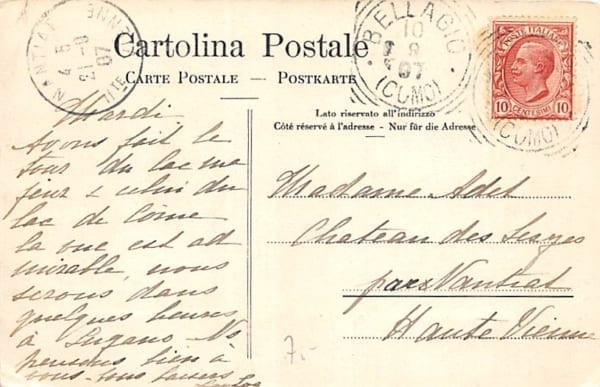 Cartolina Postale
CARTE POSTALE — POSTKARTE
Lato riservato all'indirizzo
Côté réservé à l'adresse - Nur für die Adresse
NANTIAT
4 5
21 -8
07
HTE VIENNE
BELLAGIO
10
8
07
(COMO)
POSTE ITALIANE
10 CENTESIMI 10
(COMO)
Mardi
Avons fait le
tour du lac ma
jeur & celui du
lac de Côme
la vue est ad
mirable, nous
serons dans
quelques heures
à Lugano. Ns
pensons bien à
vous. tous baisers
Madame Adet
Chateau des
par Nantiat
Haute Vienne
7.-